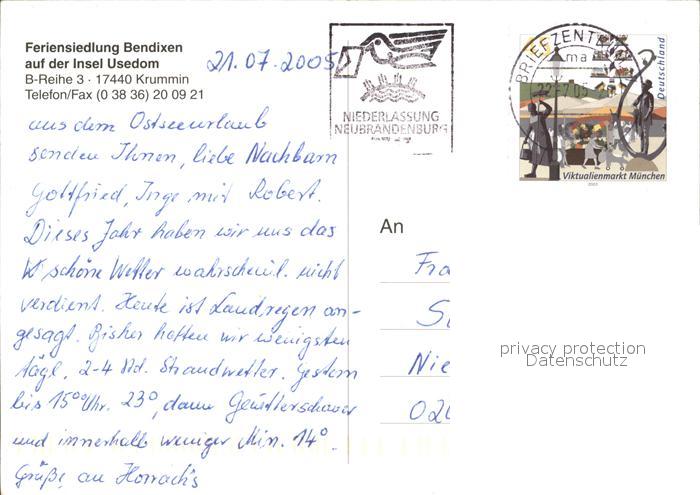 Feriensiedlung Bendixen
auf der Insel Usedom
B-Reihe 3 · 17440 Krummin
Telefon/Fax (0 38 36) 20 09 21
21.07.2005
aus dem Ostseeurlaub
senden Ihnen, liebe Nachbarn
Gottfried, Inge mit Robert.
Dieses Jahr haben wir uns das
schöne Wetter wahrscheinl. nicht
verdient. Heute ist Landregen an-
gesagt. Bisher hatten wir wenigsten
tägl. 2-4 Std. Strandwetter. Gestern
bis 15⁰⁰ Uhr. 23°, dann Gewitterschauer
und innerhalb weniger Min. 14°.
Grüße, an Horrach's
NIEDERLASSUNG
NEUBRANDENBURG
BRIEFZENTRUM
ma
Deutschland
Viktualienmarkt München
2003
An
Fra
Nie
privacy protection
Datenschutz